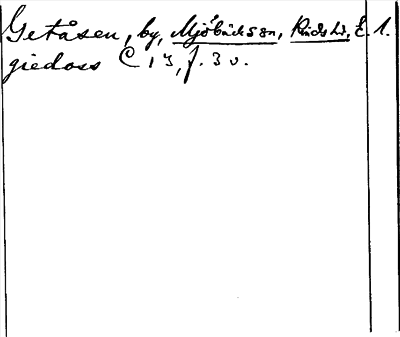 Getåsen, by, Mjöbäcks sn, Kinds hd, Ä. 1.
giedoss C 13, f. 3 v.